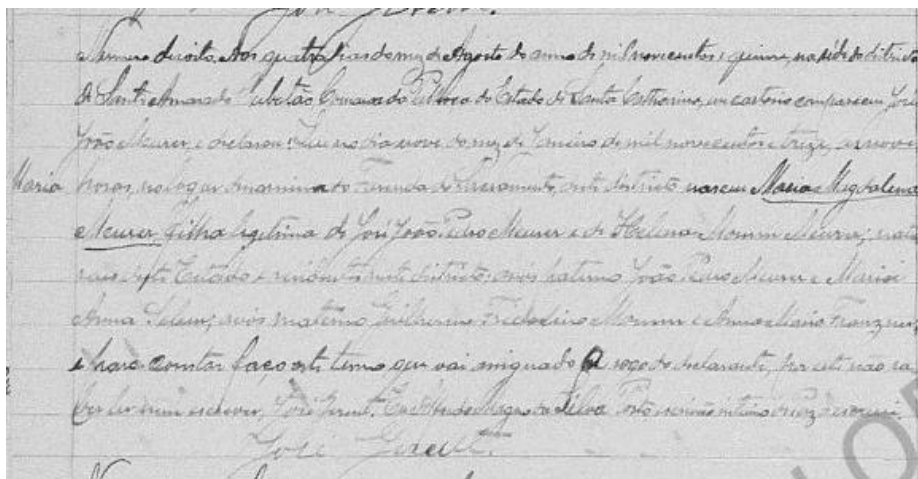 José Gerent.
Numero dezoito. Aos quatro dias do mez de Agosto do anno de mil novecentos e quinze, na séde do districto
de Santo Amaro do Cubatão Comarca da Palhoça do Estado de Santa Catharina, em cartorio compareceu José
João Meurer, e declarou: Que no dia nove do mez de Janeiro de mil novecentos e treze, as nove
Maria horas, no logar denominado Fazenda do Sacramento, deste districto nasceu Maria Magdalena
Meurer, filha legitima de José João Pedro Meurer e de Helena Momm Meurer; natu
raes deste Estado e residentes neste districto; avós paterno João Pedro Meurer e Maria
Anna; avós materno Guilherme Frederico Momm e Anna Maria
e para constar faço este termo que vai assignado a rogo do declarante, por este não sa
ber ler nem escrever, José Gerent. Eu da Silva Porto, escrivão interino o escrevi.
José Gerent.